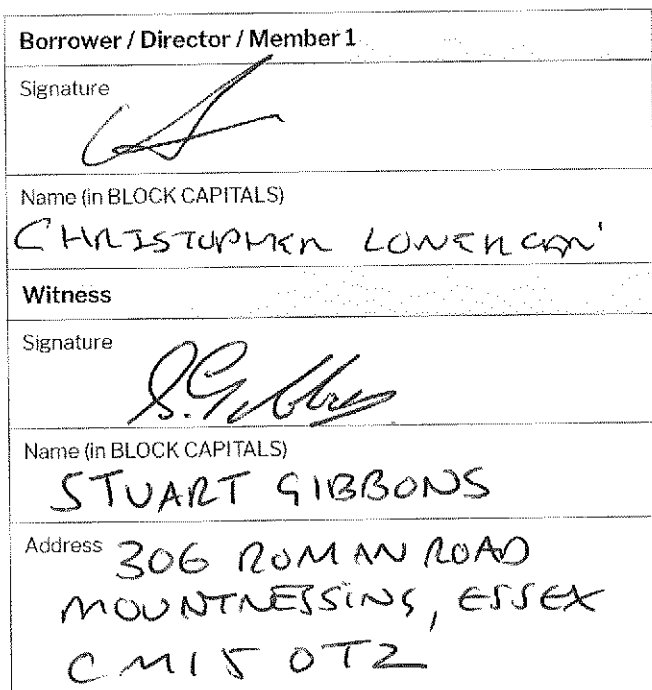 Borrower / Director / Member 1
Signature
Name (in BLOCK CAPITALS)
CHRISTOPHER
Witness
Signature
S. Gibbons
Name (in BLOCK CAPITALS)
STUART GIBBONS
Address 306 ROMAN ROAD
MOUNTNESSING, ESSEX
CM15 0TZ